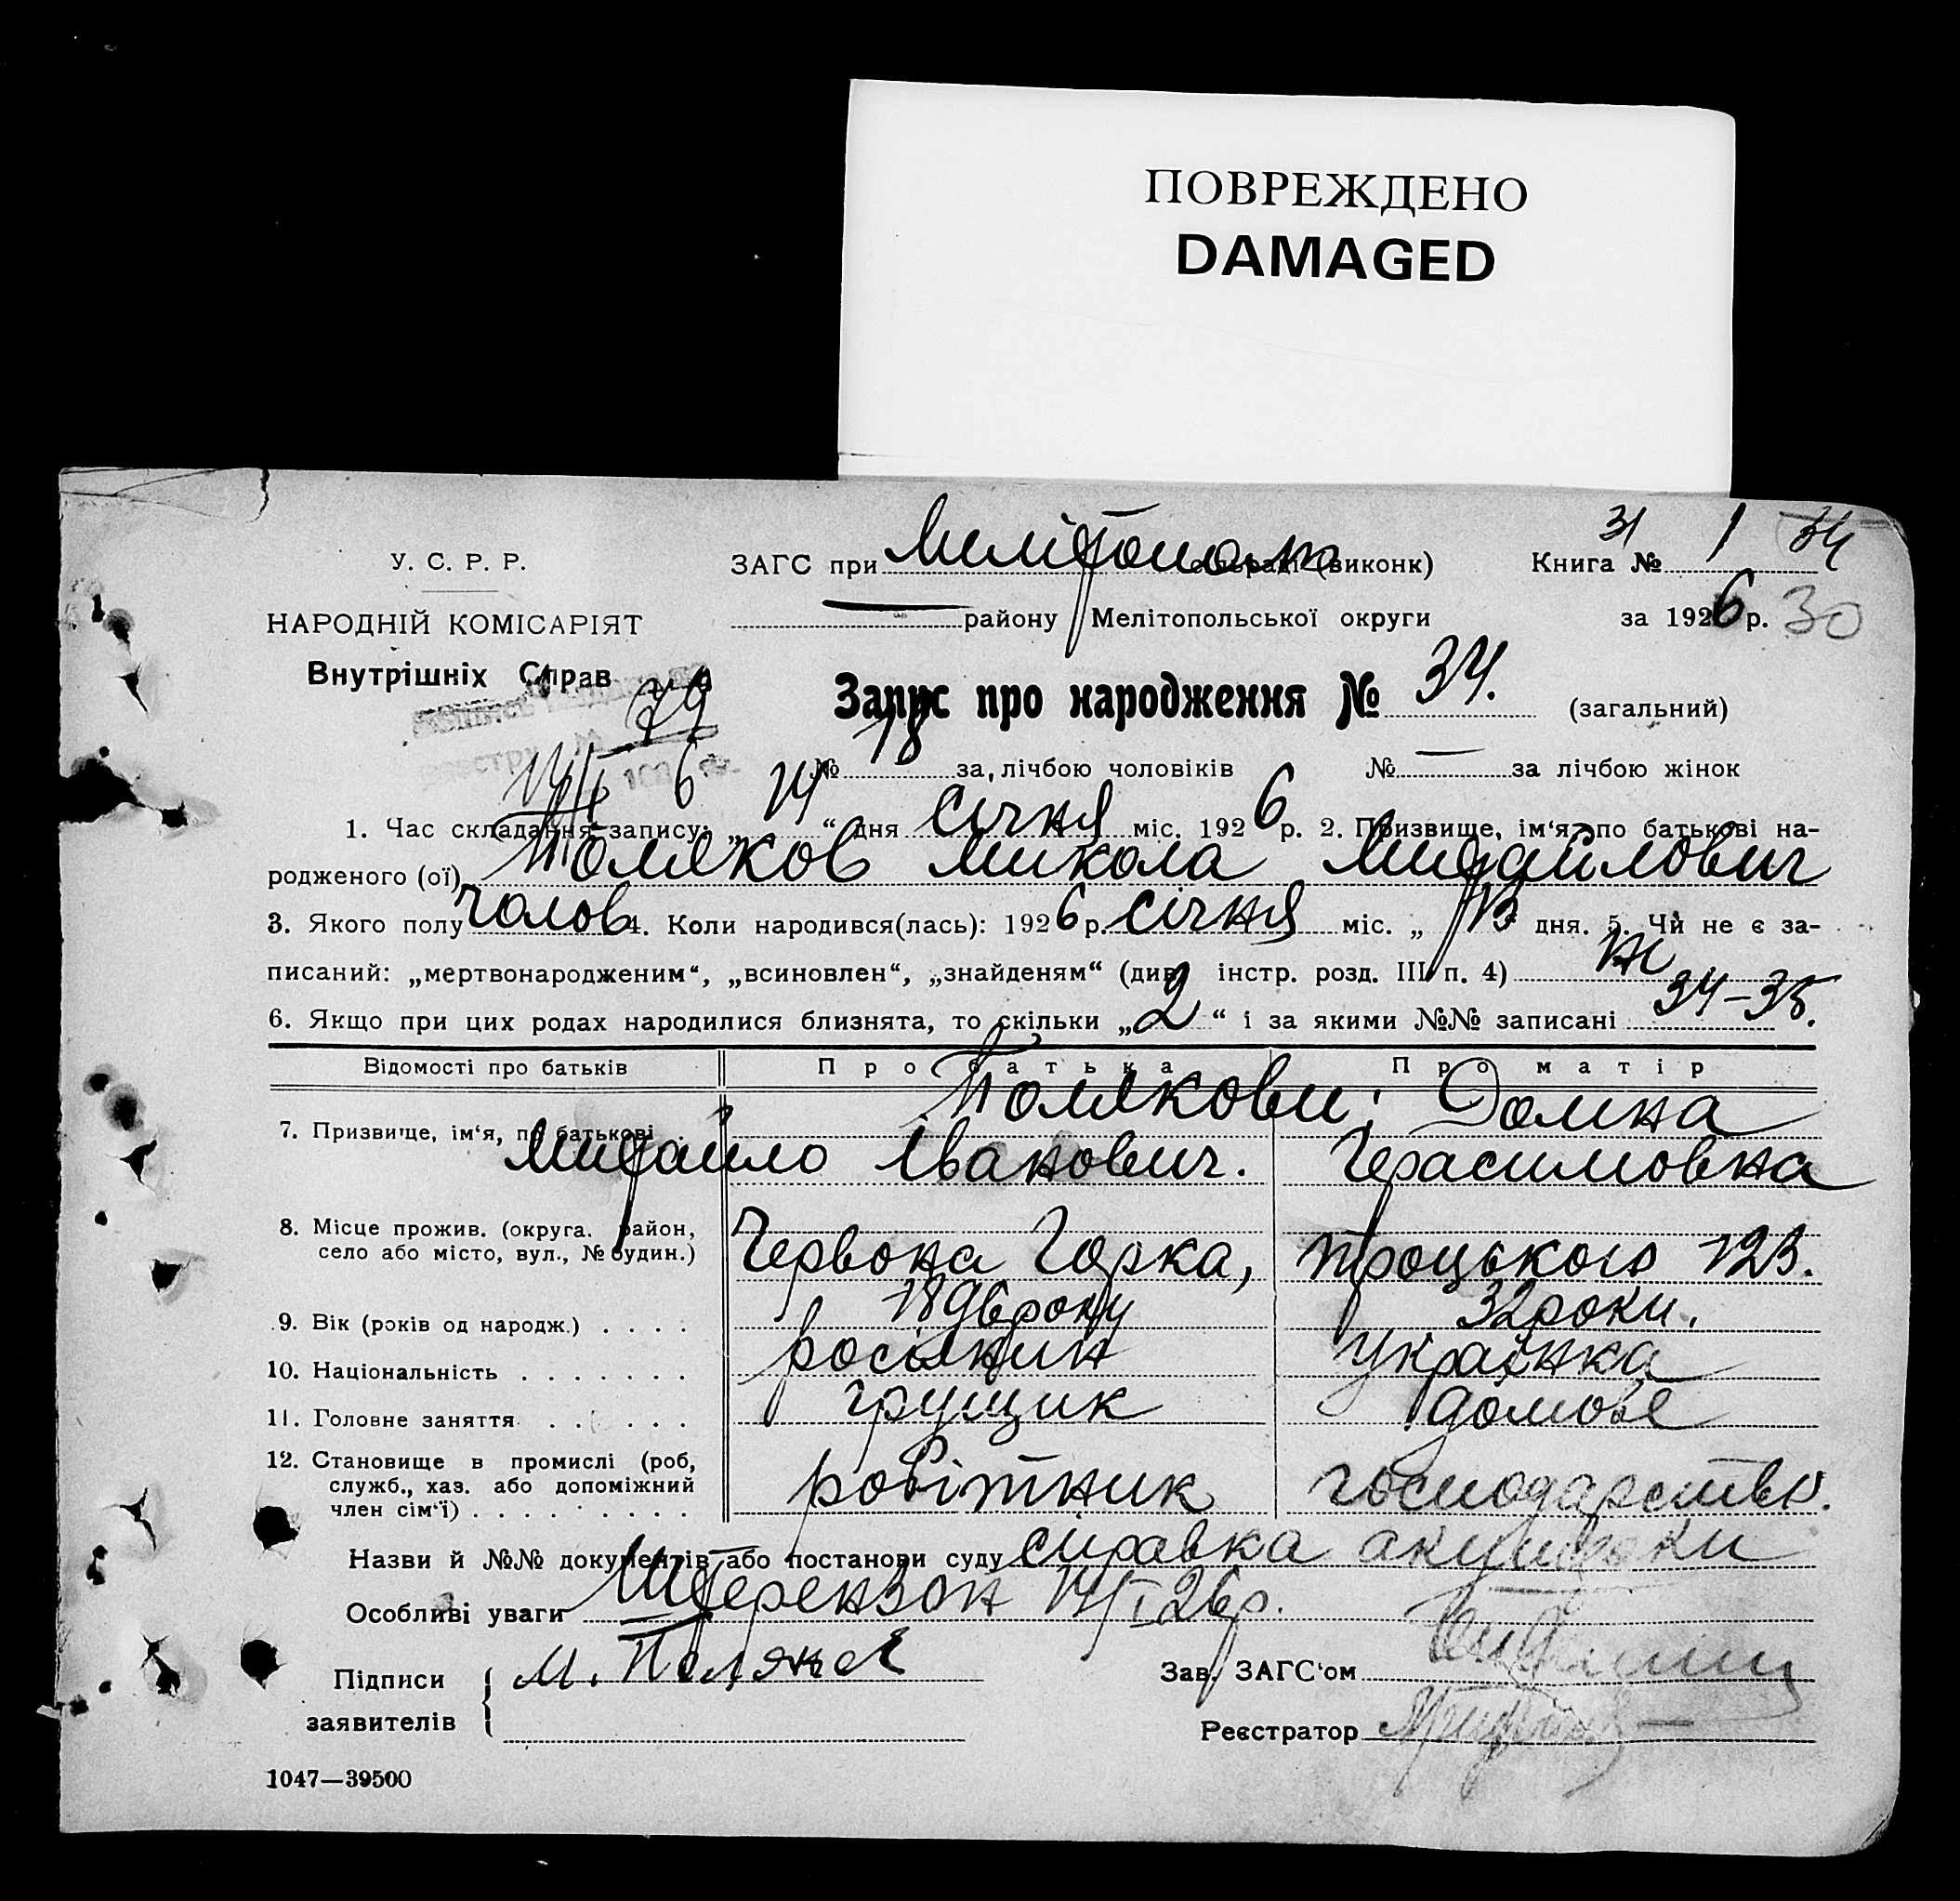 ПОВРЕЖДЕНО
DAMAGED
У. С. Р. Р.
НАРОДНІЙ КОМІСАРІЯТ
Внутрішніх Справ
ЗАГС при Мелітополь (виконк)
району Мелітопольської округи
31 1 34
Книга №
за 1926 р. 30
79
14/I 6
Запис про народження № 34. (загальний)
№ 18 за лічбою чоловіків № — за лічбою жінок
1. Час складання запису: „14“ дня січня міс. 1926 р. 2. Призвище, ім‘я, по батькові на-
родженого (ої) Поляков Микола Михайлович
3. Якого полу чолов 4. Коли народився(лась): 1926 р. січня міс. „13 дня. 5. Чи не є за-
писаний: „мертвонародженим“, „всиновлен“, „знайденям“ (див. інстр. розд. III п. 4) ні
6. Якщо при цих родах народилися близнята, то скільки „2“ і за якими №№ записані 34-35.
Відомості про батьків Про батька Про матір
7. Призвище, ім‘я, по батькові Полякови; Домна
Михайло Іванович. Герасимовна
8. Місце прожив. (округа. район,
село або місто, вул., № будин.) Червона Горка, Троцького 123.
9. Вік (років од народж.) 1896 року 32 роки.
10. Національність росіянин українка
11. Головне заняття грущик домове
12. Становище в промислі (роб,
служб., хаз. або допоміжний
член сім‘ї) робітник господарство.
Назви й №№ документів або постанови суду справка акушерки
Особливі уваги Штерензон 14/I 26 р.
Підписи
заявителів
М. Поляков
Зав. ЗАГС‘ом
Реєстратор
1047—39500